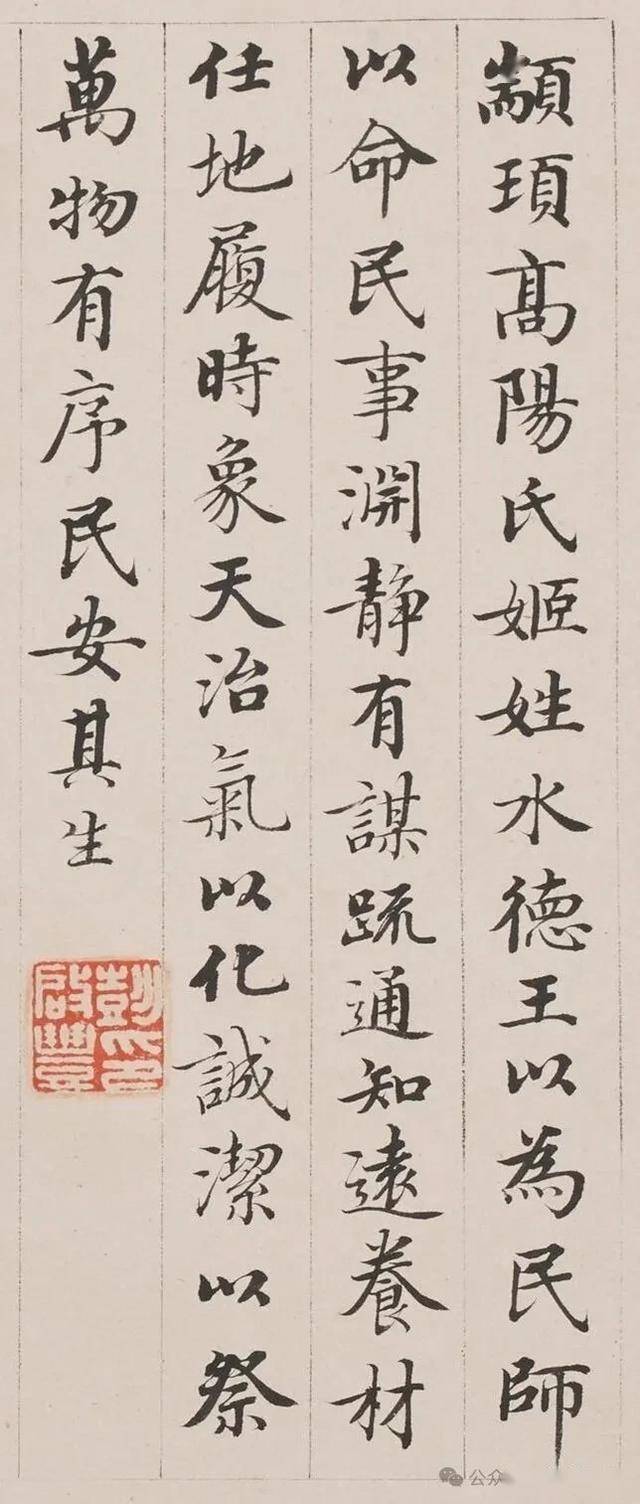 顓頊高陽氏姬姓水德王以為民師
以命民事淵静有謀疏通知遠養材
任地履時象天治氣以化誠潔以祭
萬物有序民安其生
彭啟豐印
公众